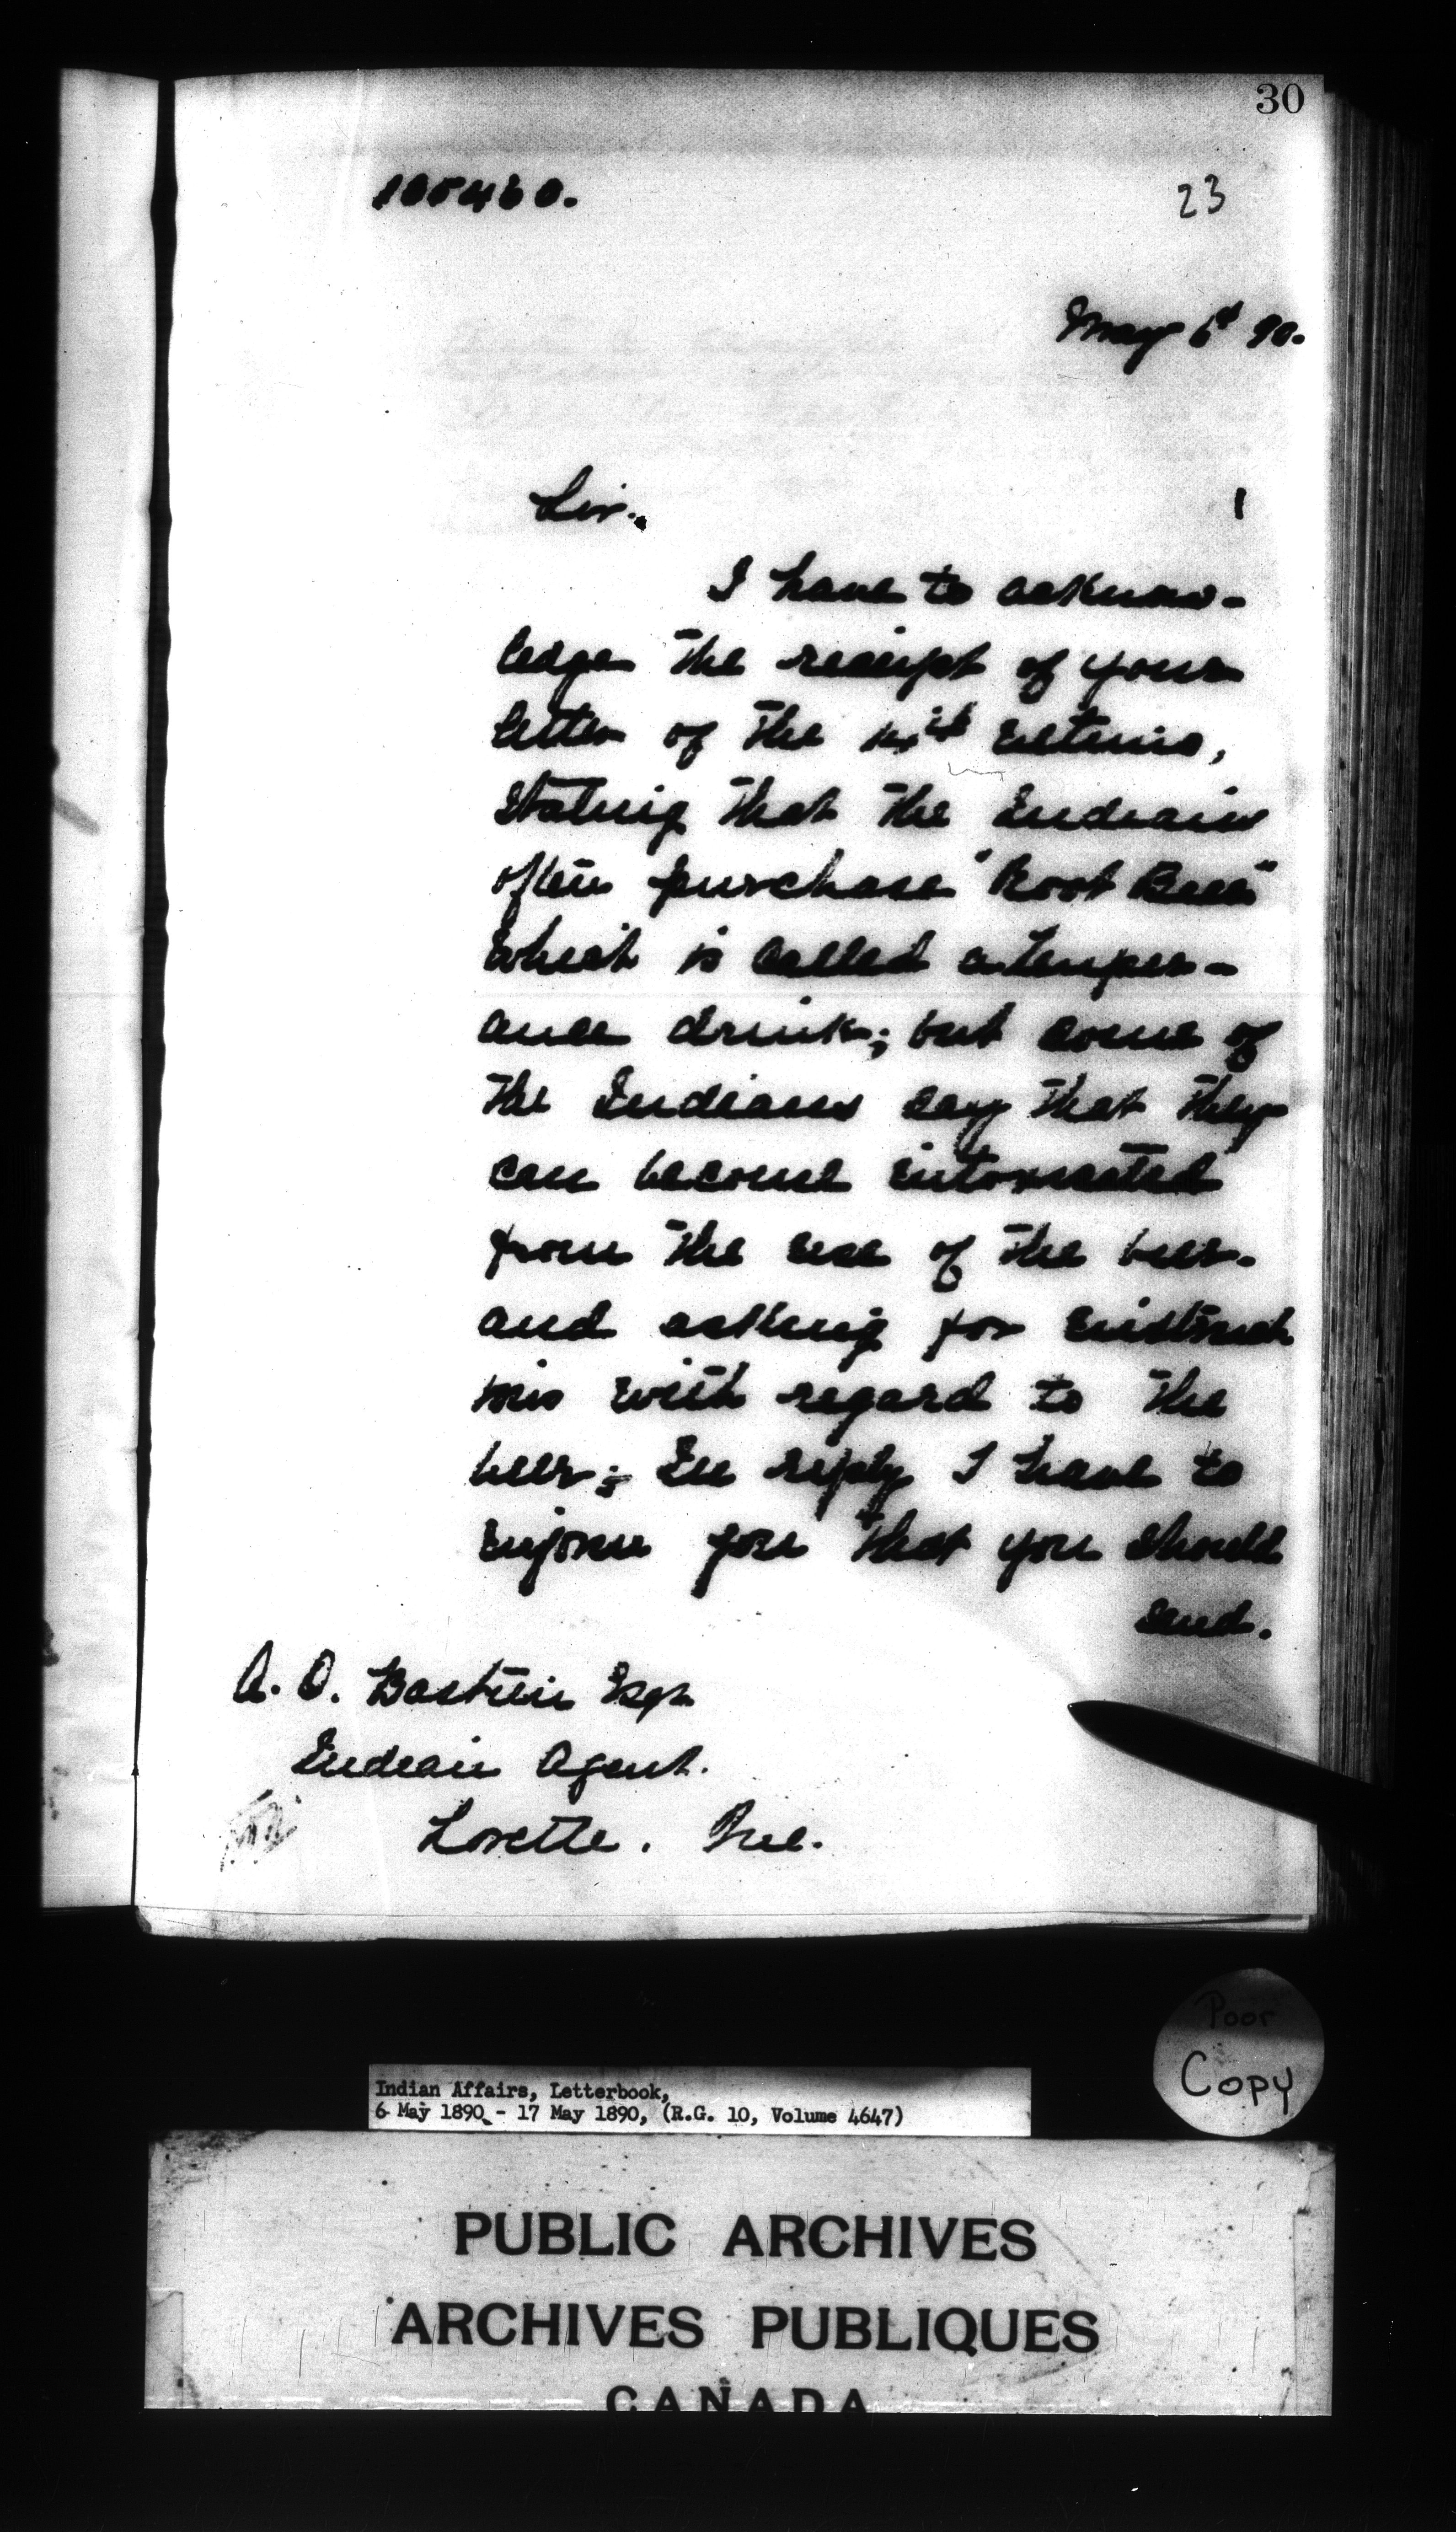 30
105460.
23
May 6th 90.
Sir.
I have to acknow-
ledge the receipt of your
letter of the ultimo,
stating that the Indians
often purchase "Root Beer"
which is called a temper-
ance drink; but some of
the Indians say that they
can become intoxicated
from the use of the beer.
and asking for instruct
ions with regard to the
beer; In reply I have to
inform you that you should
send.
A. O. Bastien Esqr
Indian Agent.
Lorette. Que.
Poor
Copy
Indian Affairs, Letterbook,
6 May 1890 - 17 May 1890, (R.G. 10, Volume 4647)
PUBLIC ARCHIVES
ARCHIVES PUBLIQUES
CANADA